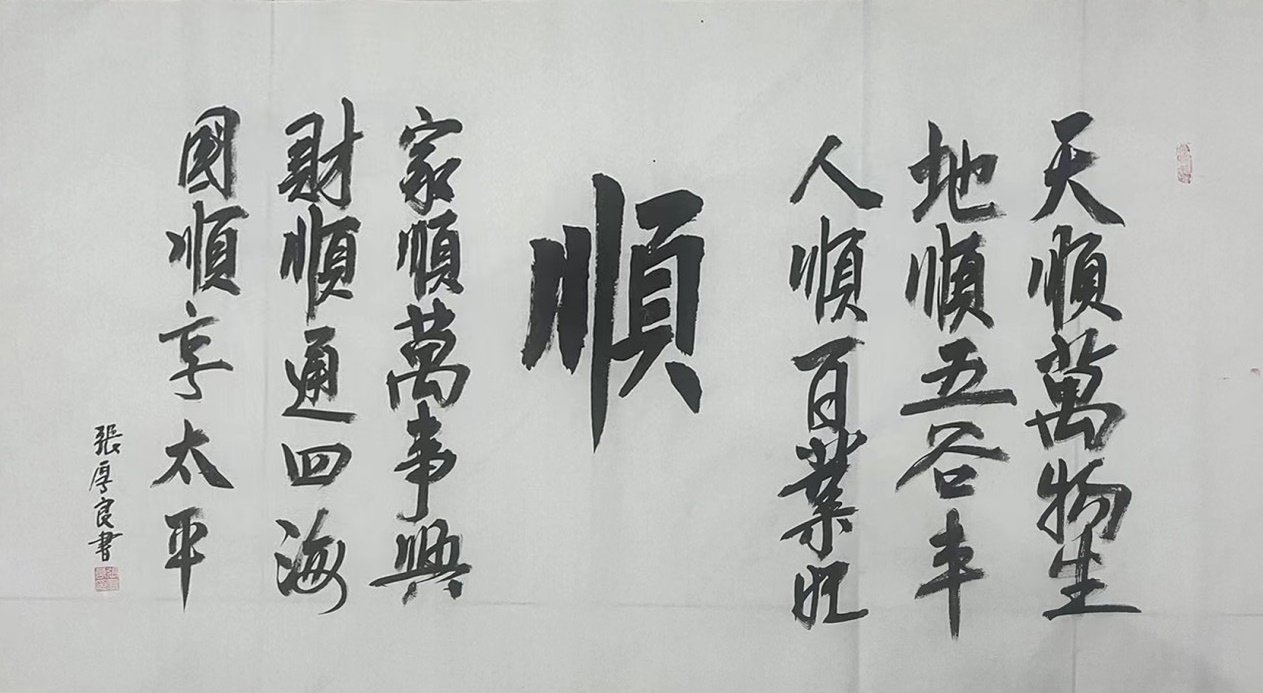 天順萬物生
地順五谷丰
人順百業旺
順
家順萬事興
財順通四海
國順享太平
張厚良書